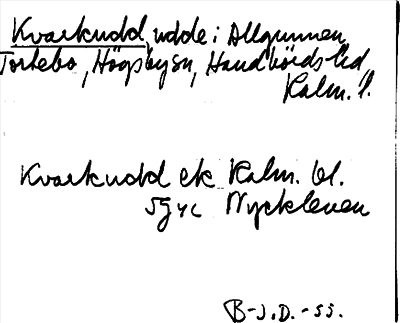 Kvarkudd, udde i Allgunnen,
Torkebo, Högsbysn, Handbörds hd
Kalm. l.
Kvarkudd ek Kalm. bl.
5g yc Nyckleven
B-J.D.-55.